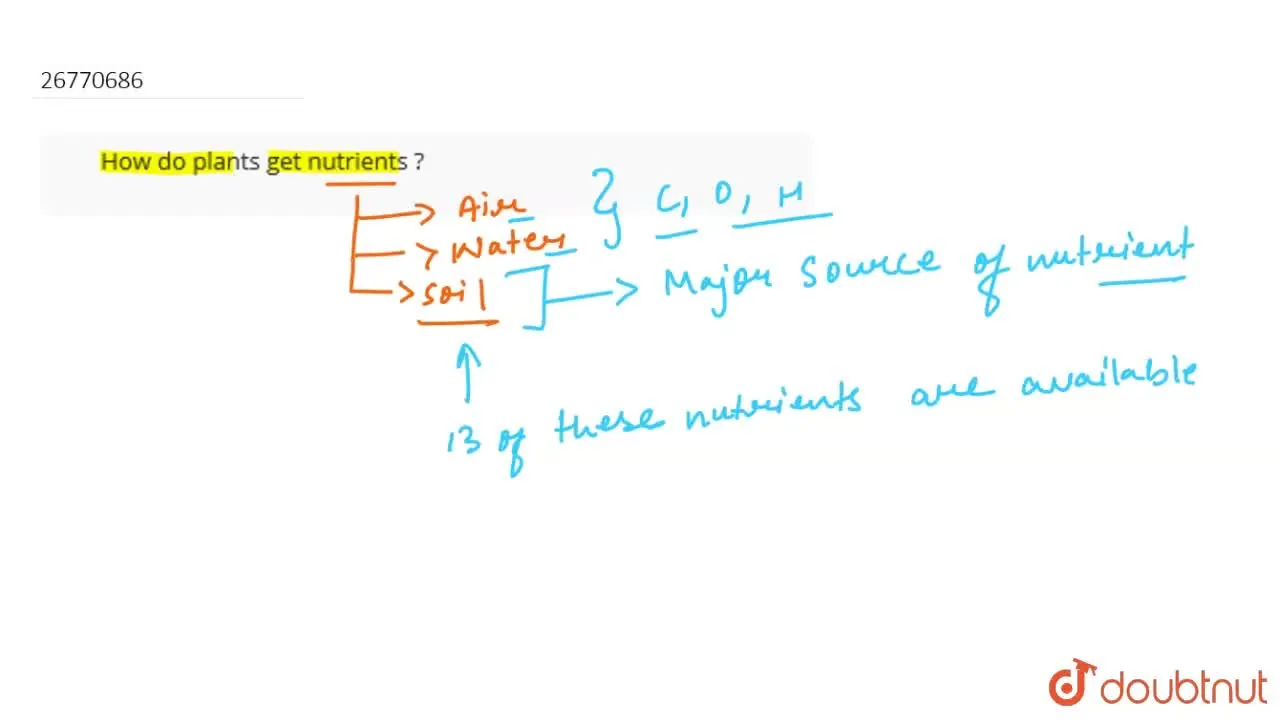 26770686
How do plants get nutrients ?
Air } C, O, H
Water
Soil ] → Major source of nutrient
13 of these nutrients are available
doubtnut